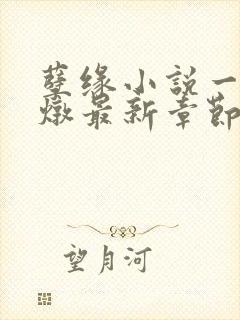 孽缘小說一
燉最新章節
望月河